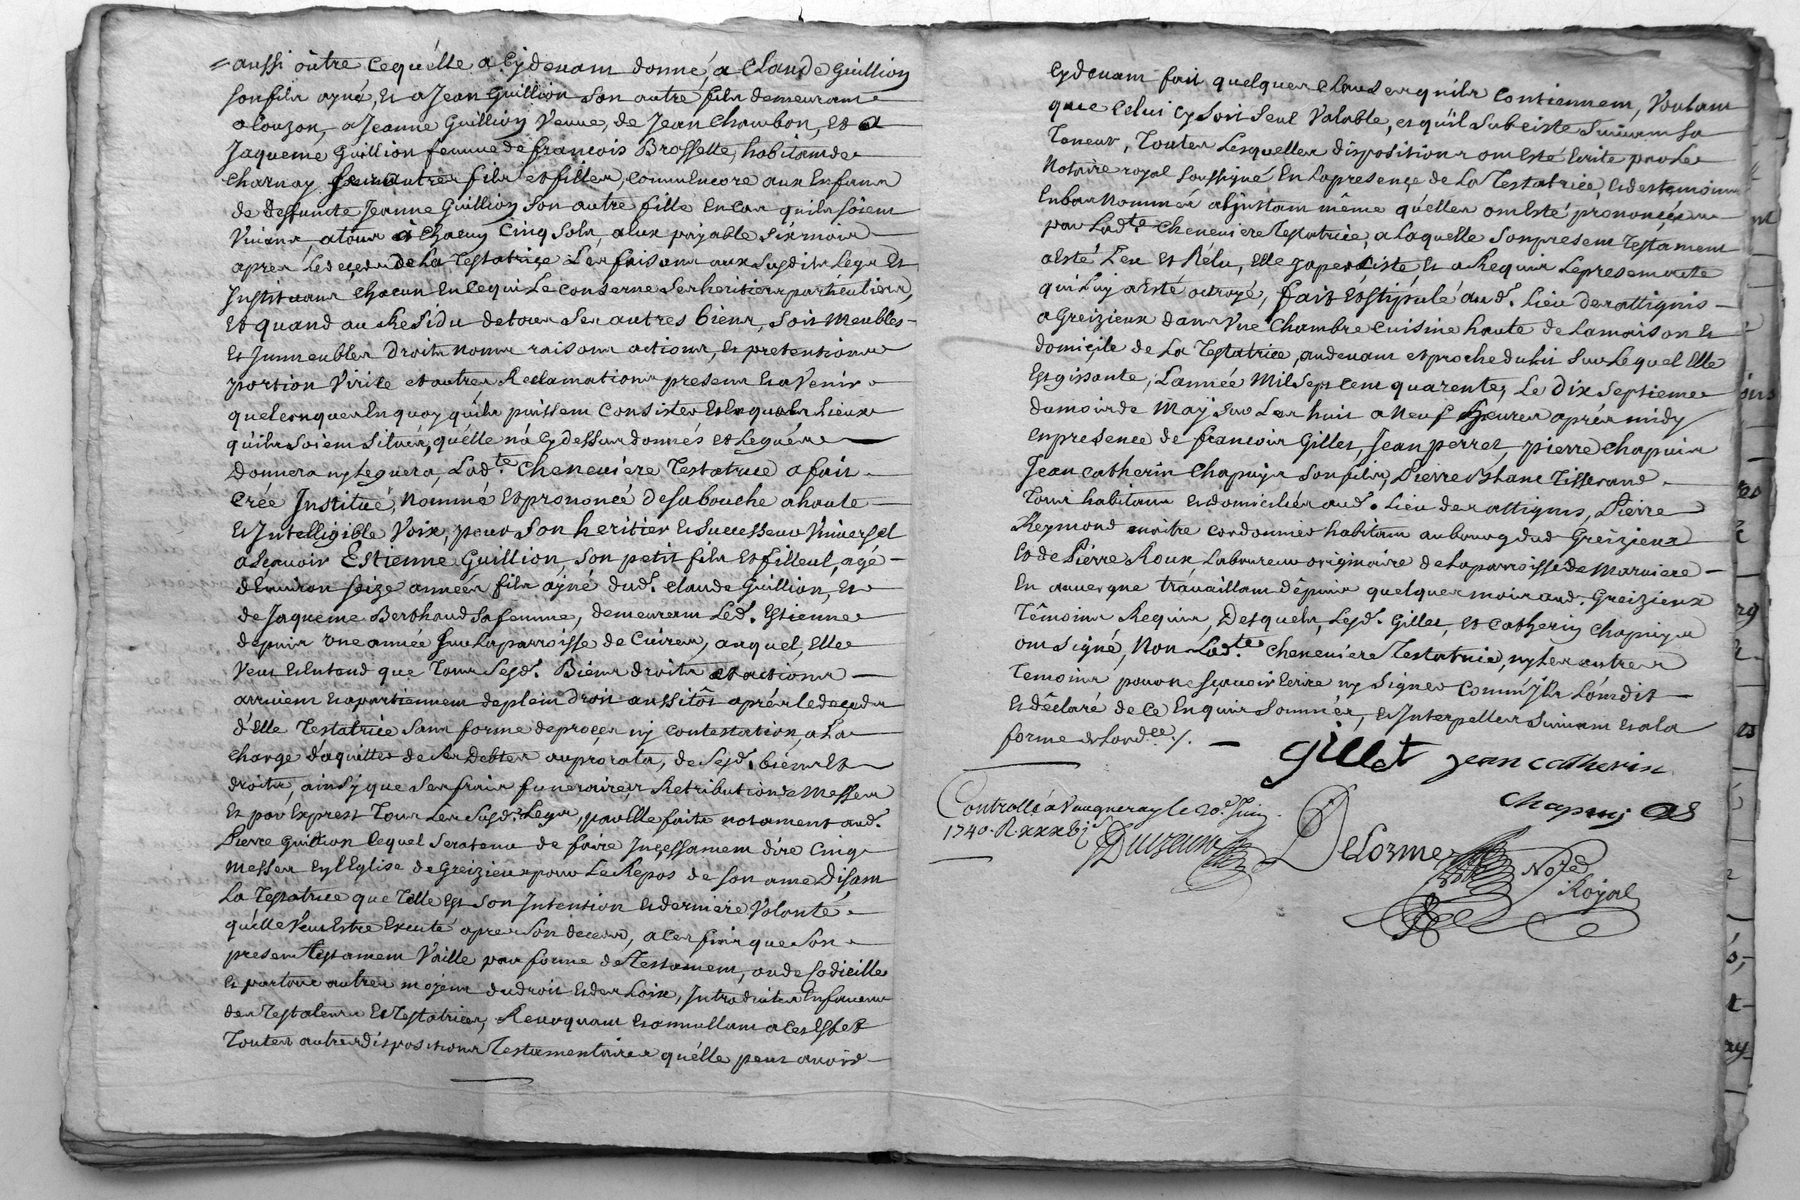 aussi oûtre cequ'elle a Cydevam donné, a Claude Guillion
son fils ayné, et a Jean Guillion son autre fils demeurant
a Couzon, a Jeanne Guillion Veuve, de Jean Chambon, et a
Jaqueme Guillion femme de francois Brossette, habitamde
Charnay ses autres fils et filles, comm Encore aux Enfans
de deffuncte Jeanne Guillion son autre fille En cas quils soient
Vivans, a tous & chacun Cinq sols, a Eux payable six mois
apres le deceds de la Testatrice Les faisant aux susdits Legs Et
Instituant chacun En ce qui Le conserne ses heritiers particuliers,
Et quand au Residu de tous ses autres biens, soit Meubles
Et Immeubles Droits noms raisons actions, Et pretentions
portion Virile et autres Reclamations presens Et a Venir
quelconques En quoy quils puissent Consister Et En quels Lieux
quils soient situés, qu'elle n'a Cy dessus donnés et Legués
Donnera ny Leguera, Ladte Cheneviere Testatrice a fait
Crée Institué, Nommé Et prononcé de sa bouche a haute
Et Intelligible Voix, pour son heritier Et successeur Universel
a sçavoir Estienne Guillion, son petit fils Et filleul, agé
d'Environ seize années fils ayné dud. Claude Guillion, Et
de Jaqueme Berthaud sa femme, demeurant Led. Estienne
depuis Une année sur La parroisse de Cuires, auquel, Elle
Veut Et Entand que Tous sesd. Biens droits et actions
arrivent Et apartiennent de plein Droit aussitôt aprés le deceds
d'Elle Testatrice sans forme de proces ny contestation, a La
charge d'aquitter de ses Debtes au prorata, de sesd. biens Et
droits, ainsy que ses frais funeraires Retributions Messes
Et par Exprest Tous Les susd. Legs, par Elle faits notament aud.
Pierre Guillion Lequel sera tenu de faire Incessament dire Cinq
Messes En l'Eglise de Greizieux pour Le Repos de son ame Disant
La Testatrice que Telle Est son Intention Et derniere Volonté
qu'elle Veut Estre Executé apres son deceds, a ces fins que son
present Testament Vaille par forme de Testament, ou de Codicille
Et par tous autres moyens du droit Et des Loix, Introduites En faveur
des Testateurs Et Testatrices, Revoquant Et annullant a cet Effet
Toutes autres dispositions Testamentaires qu'elle peut avoir
Cydevant fait quelques Clauses quils contiennent, Voulant
que Celui Cy soit seul Valable, et qu'il subciste suivant sa
Teneur, Toutes Lesquelles dispositions ont Esté Ecrite par Le
Notaire royal soussigné En la presence de La Testatrice, Et des temoins
En bas Nommés a l'Instant même qu'elles ont Esté prononcées
par Ladte Cheneviere Testatrice, a Laquelle son present Testament
a Esté Leu Et Rélu, Elle y a percisté, Et a Requis Le present acte
qui Luy a Esté octroyé, fait Et stipulé aud. Lieu de rattignis
a Greizieux dans Une Chambre Cuisine haute de La maison Et
domicile de La Testatrice, au devant et proche du lit sur Lequel Elle
Est gissante, L'année Mil sept Cent quarente, Le Dix septieme
du mois de May sur Les huit a Neuf heures aprés midy
En presence de francois Gillet, Jean perret, pierre Chapuis
Jean Catherin Chapuys son fils, Pierre Tisserand
Tous habitans Et domiciliés aud. Lieu de rattignis, Pierre
Reymond maitre Cordonnier habitant au bourg dud Greizieux
Et de Pierre Roux Laboureur originaire de La parroisse de
En auvergne travaillant dépuis quelques mois aud. Greizieux
Témoins Requis, Desquels, Lesd. Gillet, et Catherin Chapuys
ont signé, Non Ladte Cheneviere Testatrice, ny Les autres
Temoins pour ne sçavoir Ecrire ny signer Comm'Ils L'ont dit
Et déclaré de ce Enquis sommés, et Interpellés suivant Et a la
forme de Lordce ./.
Gillet Jean Catherin
Chapuis
Controllé a Vaugneray le 20e Juin
1740. R. xxx
Delorme Notre
Royal